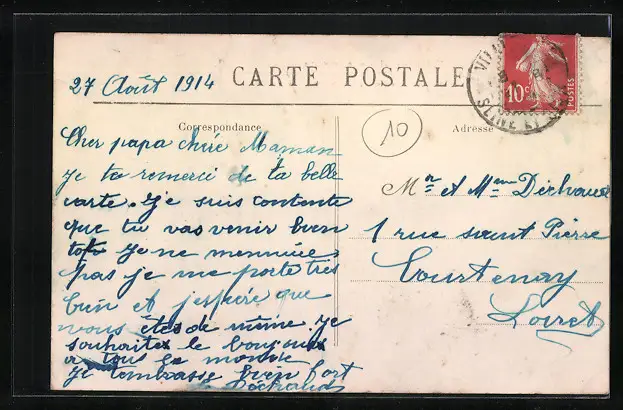 27 Août 1914
CARTE POSTALE
Correspondance
Adresse
10
10c
POSTES
SEINE ET
Cher papa chère Maman
je ta remerci de ta belle
carte. Je suis contente
que tu vas venir bien
toto je ne mennuie
pas je me porte très
bien et j'espère que
vous êtes de même. je
souhaite le bonjour
a tous le monde
je tembrasse bien fort
Mr et Mme Dechaud
1 rue saint Pierre
Courtenay
Loiret